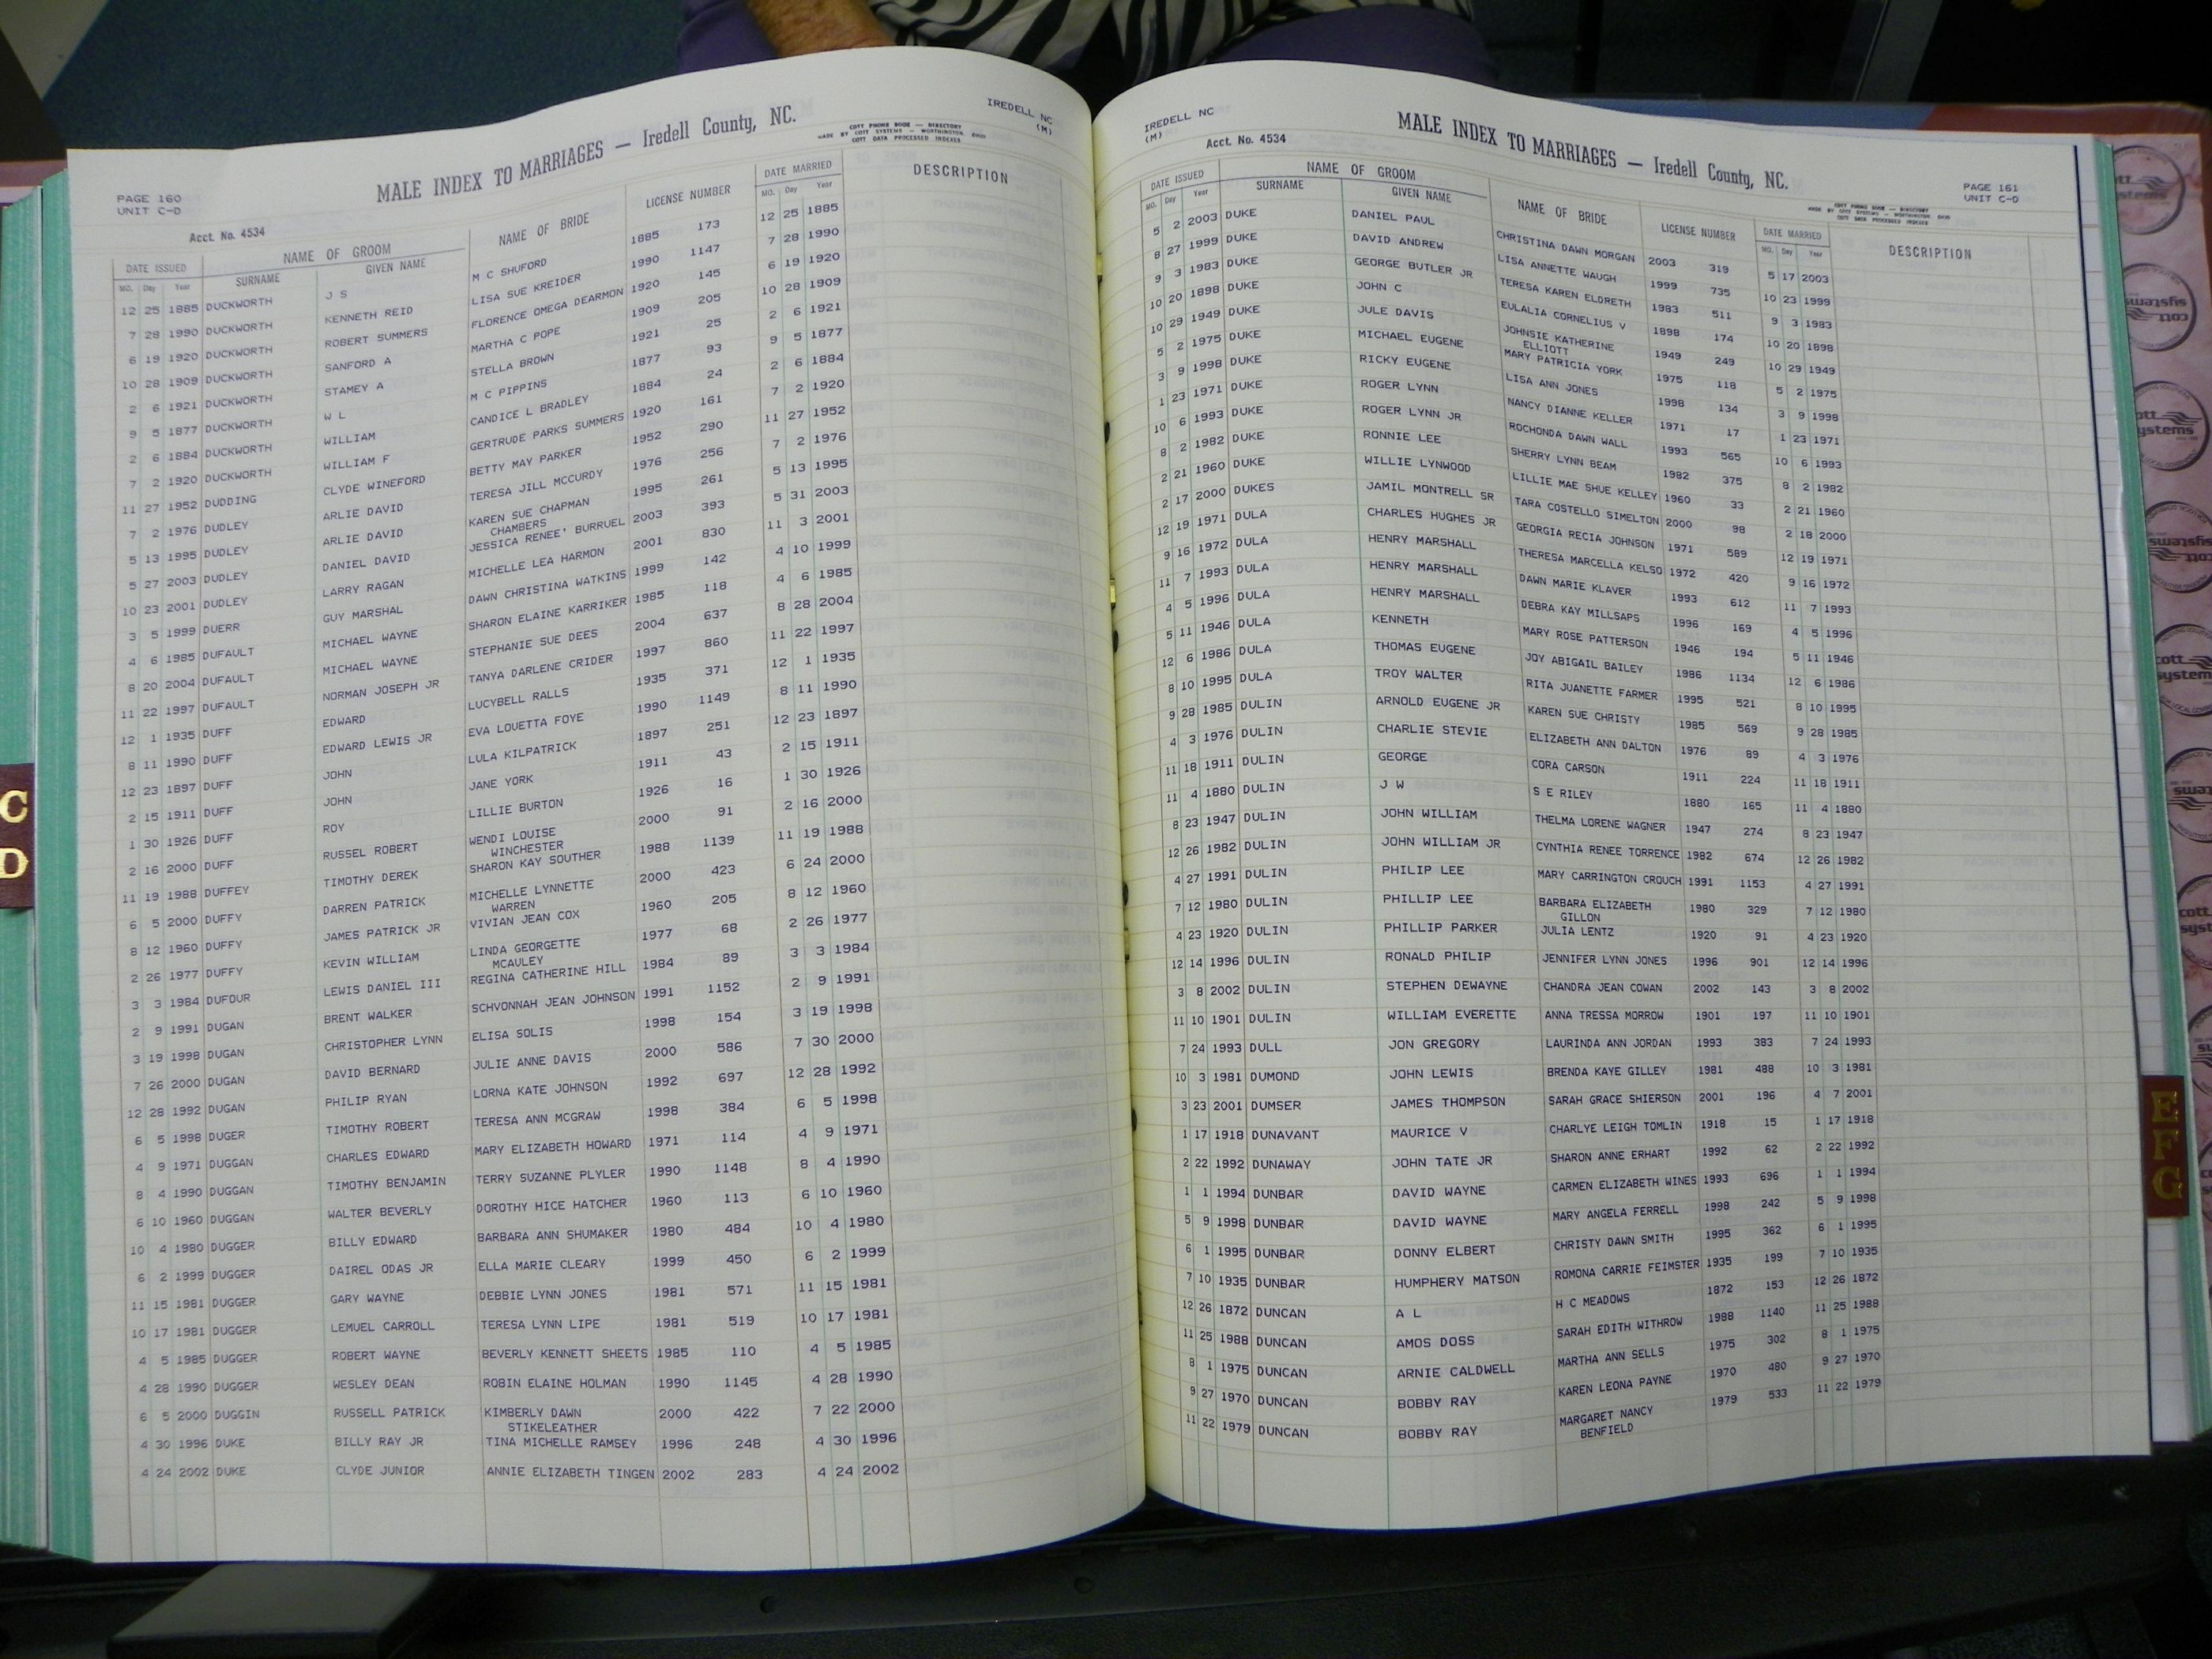 IREDELL NC
(M)
MALE INDEX TO MARRIAGES — Iredell County, NC.
COTT PHONE BOOK — DIRECTORY
MADE BY COTT SYSTEMS — WORTHINGTON OHIO
COTT DATA PROCESSED INDEXES
PAGE 160
UNIT C-D
Acct. No. 4534
DATE ISSUED NAME OF GROOM NAME OF BRIDE LICENSE NUMBER DATE MARRIED DESCRIPTION
MO. Day Year SURNAME GIVEN NAME MO. Day Year
12 25 1885 DUCKWORTH J S M C SHUFORD 1885 173 12 25 1885
7 28 1990 DUCKWORTH KENNETH REID LISA SUE KREIDER 1990 1147 7 28 1990
6 19 1920 DUCKWORTH ROBERT SUMMERS FLORENCE OMEGA DEARMON 1920 145 6 19 1920
10 28 1909 DUCKWORTH SANFORD A MARTHA C POPE 1909 205 10 28 1909
2 6 1921 DUCKWORTH STAMEY A STELLA BROWN 1921 25 2 6 1921
9 5 1877 DUCKWORTH W L M C PIPPINS 1877 93 9 5 1877
2 6 1884 DUCKWORTH WILLIAM CANDICE L BRADLEY 1884 24 2 6 1884
7 2 1920 DUCKWORTH WILLIAM F GERTRUDE PARKS SUMMERS 1920 161 7 2 1920
11 27 1952 DUDDING CLYDE WINEFORD BETTY MAY PARKER 1952 290 11 27 1952
7 2 1976 DUDLEY ARLIE DAVID TERESA JILL MCCURDY 1976 256 7 2 1976
5 13 1995 DUDLEY ARLIE DAVID KAREN SUE CHAPMAN 1995 261 5 13 1995
CHAMBERS
5 27 2003 DUDLEY DANIEL DAVID JESSICA RENEE' BURRUEL 2003 393 5 31 2003
10 23 2001 DUDLEY LARRY RAGAN MICHELLE LEA HARMON 2001 830 11 3 2001
3 5 1999 DUERR GUY MARSHAL DAWN CHRISTINA WATKINS 1999 142 4 10 1999
4 6 1985 DUFAULT MICHAEL WAYNE SHARON ELAINE KARRIKER 1985 118 4 6 1985
8 20 2004 DUFAULT MICHAEL WAYNE STEPHANIE SUE DEES 2004 637 8 28 2004
11 22 1997 DUFAULT NORMAN JOSEPH JR TANYA DARLENE CRIDER 1997 860 11 22 1997
12 1 1935 DUFF EDWARD LUCYBELL RALLS 1935 371 12 1 1935
8 11 1990 DUFF EDWARD LEWIS JR EVA LOUETTA FOYE 1990 1149 8 11 1990
12 23 1897 DUFF JOHN LULA KILPATRICK 1897 251 12 23 1897
2 15 1911 DUFF JOHN JANE YORK 1911 43 2 15 1911
1 30 1926 DUFF ROY LILLIE BURTON 1926 16 1 30 1926
2 16 2000 DUFF RUSSEL ROBERT WENDI LOUISE 2000 91 2 16 2000
WINCHESTER
11 19 1988 DUFFEY TIMOTHY DEREK SHARON KAY SOUTHER 1988 1139 11 19 1988
6 5 2000 DUFFY DARREN PATRICK MICHELLE LYNNETTE 2000 423 6 24 2000
WARREN
8 12 1960 DUFFY JAMES PATRICK JR VIVIAN JEAN COX 1960 205 8 12 1960
2 26 1977 DUFFY KEVIN WILLIAM LINDA GEORGETTE 1977 68 2 26 1977
MCAULEY
3 3 1984 DUFOUR LEWIS DANIEL III REGINA CATHERINE HILL 1984 89 3 3 1984
2 9 1991 DUGAN BRENT WALKER SCHVONNAH JEAN JOHNSON 1991 1152 2 9 1991
3 19 1998 DUGAN CHRISTOPHER LYNN ELISA SOLIS 1998 154 3 19 1998
7 26 2000 DUGAN DAVID BERNARD JULIE ANNE DAVIS 2000 586 7 30 2000
12 28 1992 DUGAN PHILIP RYAN LORNA KATE JOHNSON 1992 697 12 28 1992
6 5 1998 DUGER TIMOTHY ROBERT TERESA ANN MCGRAW 1998 384 6 5 1998
4 9 1971 DUGGAN CHARLES EDWARD MARY ELIZABETH HOWARD 1971 114 4 9 1971
8 4 1990 DUGGAN TIMOTHY BENJAMIN TERRY SUZANNE PLYLER 1990 1148 8 4 1990
6 10 1960 DUGGAN WALTER BEVERLY DOROTHY HICE HATCHER 1960 113 6 10 1960
10 4 1980 DUGGER BILLY EDWARD BARBARA ANN SHUMAKER 1980 484 10 4 1980
6 2 1999 DUGGER DAIREL ODAS JR ELLA MARIE CLEARY 1999 450 6 2 1999
11 15 1981 DUGGER GARY WAYNE DEBBIE LYNN JONES 1981 571 11 15 1981
10 17 1981 DUGGER LEMUEL CARROLL TERESA LYNN LIPE 1981 519 10 17 1981
4 5 1985 DUGGER ROBERT WAYNE BEVERLY KENNETT SHEETS 1985 110 4 5 1985
4 28 1990 DUGGER WESLEY DEAN ROBIN ELAINE HOLMAN 1990 1145 4 28 1990
6 5 2000 DUGGIN RUSSELL PATRICK KIMBERLY DAWN 2000 422 7 22 2000
STIKELEATHER
4 30 1996 DUKE BILLY RAY JR TINA MICHELLE RAMSEY 1996 248 4 30 1996
4 24 2002 DUKE CLYDE JUNIOR ANNIE ELIZABETH TINGEN 2002 283 4 24 2002
IREDELL NC
(M)
Acct. No. 4534
MALE INDEX TO MARRIAGES — Iredell County, NC.
COTT PHONE BOOK — DIRECTORY
MADE BY COTT SYSTEMS — WORTHINGTON OHIO
COTT DATA PROCESSED INDEXES
PAGE 161
UNIT C-D
DATE ISSUED NAME OF GROOM NAME OF BRIDE LICENSE NUMBER DATE MARRIED DESCRIPTION
MO. Day Year SURNAME GIVEN NAME MO. Day Year
5 2 2003 DUKE DANIEL PAUL CHRISTINA DAWN MORGAN 2003 319 5 17 2003
8 27 1999 DUKE DAVID ANDREW LISA ANNETTE WAUGH 1999 735 10 23 1999
9 3 1983 DUKE GEORGE BUTLER JR TERESA KAREN ELDRETH 1983 511 9 3 1983
10 20 1898 DUKE JOHN C EULALIA CORNELIUS V 1898 174 10 20 1898
10 29 1949 DUKE JULE DAVIS JOHNSIE KATHERINE 1949 249 10 29 1949
ELLIOTT
5 2 1975 DUKE MICHAEL EUGENE MARY PATRICIA YORK 1975 118 5 2 1975
3 9 1998 DUKE RICKY EUGENE LISA ANN JONES 1998 134 3 9 1998
1 23 1971 DUKE ROGER LYNN NANCY DIANNE KELLER 1971 17 1 23 1971
10 6 1993 DUKE ROGER LYNN JR ROCHONDA DAWN WALL 1993 565 10 6 1993
8 2 1982 DUKE RONNIE LEE SHERRY LYNN BEAM 1982 375 8 2 1982
2 21 1960 DUKE WILLIE LYNWOOD LILLIE MAE SHUE KELLEY 1960 33 2 21 1960
2 17 2000 DUKES JAMIL MONTRELL SR TARA COSTELLO SIMELTON 2000 98 2 18 2000
12 19 1971 DULA CHARLES HUGHES JR GEORGIA RECIA JOHNSON 1971 589 12 19 1971
9 16 1972 DULA HENRY MARSHALL THERESA MARCELLA KELSO 1972 420 9 16 1972
11 7 1993 DULA HENRY MARSHALL DAWN MARIE KLAVER 1993 612 11 7 1993
4 5 1996 DULA HENRY MARSHALL DEBRA KAY MILLSAPS 1996 169 4 5 1996
5 11 1946 DULA KENNETH MARY ROSE PATTERSON 1946 194 5 11 1946
12 6 1986 DULA THOMAS EUGENE JOY ABIGAIL BAILEY 1986 1134 12 6 1986
8 10 1995 DULA TROY WALTER RITA JUANETTE FARMER 1995 521 8 10 1995
9 28 1985 DULIN ARNOLD EUGENE JR KAREN SUE CHRISTY 1985 569 9 28 1985
4 3 1976 DULIN CHARLIE STEVIE ELIZABETH ANN DALTON 1976 89 4 3 1976
11 18 1911 DULIN GEORGE CORA CARSON 1911 224 11 18 1911
11 4 1880 DULIN J W S E RILEY 1880 165 11 4 1880
8 23 1947 DULIN JOHN WILLIAM THELMA LORENE WAGNER 1947 274 8 23 1947
12 26 1982 DULIN JOHN WILLIAM JR CYNTHIA RENEE TORRENCE 1982 674 12 26 1982
4 27 1991 DULIN PHILIP LEE MARY CARRINGTON CROUCH 1991 1153 4 27 1991
7 12 1980 DULIN PHILLIP LEE BARBARA ELIZABETH 1980 329 7 12 1980
GILLON
4 23 1920 DULIN PHILLIP PARKER JULIA LENTZ 1920 91 4 23 1920
12 14 1996 DULIN RONALD PHILIP JENNIFER LYNN JONES 1996 901 12 14 1996
3 8 2002 DULIN STEPHEN DEWAYNE CHANDRA JEAN COWAN 2002 143 3 8 2002
11 10 1901 DULIN WILLIAM EVERETTE ANNA TRESSA MORROW 1901 197 11 10 1901
7 24 1993 DULL JON GREGORY LAURINDA ANN JORDAN 1993 383 7 24 1993
10 3 1981 DUMOND JOHN LEWIS BRENDA KAYE GILLEY 1981 488 10 3 1981
3 23 2001 DUMSER JAMES THOMPSON SARAH GRACE SHIERSON 2001 196 4 7 2001
1 17 1918 DUNAVANT MAURICE V CHARLYE LEIGH TOMLIN 1918 15 1 17 1918
2 22 1992 DUNAWAY JOHN TATE JR SHARON ANNE ERHART 1992 62 2 22 1992
1 1 1994 DUNBAR DAVID WAYNE CARMEN ELIZABETH WINES 1993 696 1 1 1994
5 9 1998 DUNBAR DAVID WAYNE MARY ANGELA FERRELL 1998 242 5 9 1998
6 1 1995 DUNBAR DONNY ELBERT CHRISTY DAWN SMITH 1995 362 6 1 1995
7 10 1935 DUNBAR HUMPHERY MATSON ROMONA CARRIE FEIMSTER 1935 199 7 10 1935
12 26 1872 DUNCAN A L H C MEADOWS 1872 153 12 26 1872
11 25 1988 DUNCAN AMOS DOSS SARAH EDITH WITHROW 1988 1140 11 25 1988
8 1 1975 DUNCAN ARNIE CALDWELL MARTHA ANN SELLS 1975 302 8 1 1975
9 27 1970 DUNCAN BOBBY RAY KAREN LEONA PAYNE 1970 480 9 27 1970
11 22 1979 DUNCAN BOBBY RAY MARGARET NANCY 1979 533 11 22 1979
BENFIELD
C
D
E
F
G
cott
systems